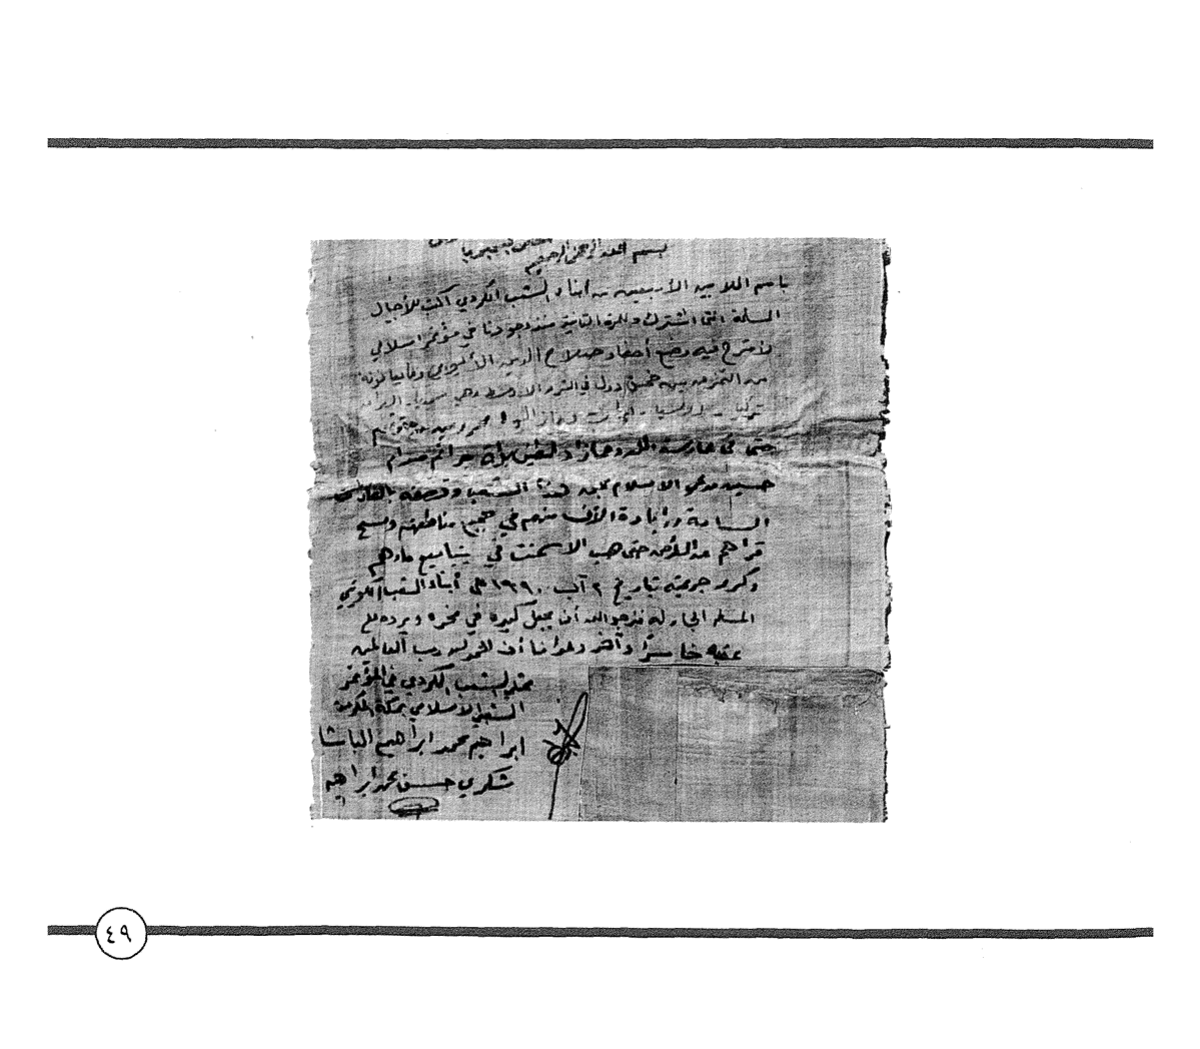 بسم الله الرحمن الرحيم
باسم الملايين الأربعين من أبناء الشعب الكردي اكتب للأجيال
المسلمة انني اشترك وللمرة الثانية منذ وجودنا في مؤتمر اسلامي
لأشرح فيه وضع أحفاد صلاح الدين الأيوبي وما يعانونه
من التمزق بين خمس دول في الشرق الاوسط وهي سوريا - العراق
تركيا - روسيا - ايران
حتى في ممارسة اللغة جرائم صدام
حسين مدعي الاسلام بحق هذا الشعب وقصفه بالغازات
السامة وإبادة الألاف منهم في جميع مناطقهم ومسح
قراهم عن الأرض حتى صب الاسمنت في ينابيع مائهم
وكرر جريمته بتاريخ ٢ آب ١٩٩٠ على أبناء الشعب الكويتي
المسلم الجار له فنرجو الله أن يجعل كيده في نحره ويرده على
عقبه خاسرًا وآخر دعوانا أن الحمد لله رب العالمين
ممثل الشعب الكردي في المؤتمر
الشعبي الاسلامي بمكة المكرمة
ابراهيم محمد ابراهيم الباشا
شكري حسن محمد ابراهيم
٤٩